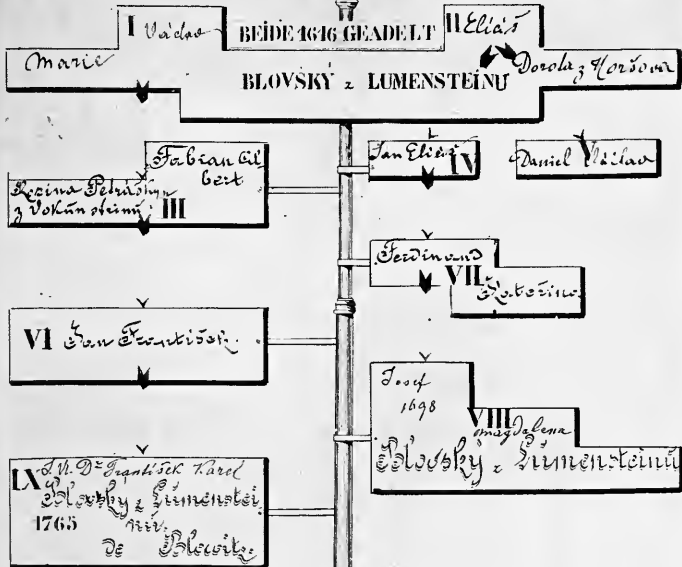 I Václav
BEIDE 1616 GEADELT
II Eliáš
Marie
BLOVSKÝ z LUMENSTEINU
Dorota z Koršova
Fabian Gil
bert
Rozina
z Vokúnsteinu III
Jan Eliáš IV
Daniel Václav V
Ferdinand
VII
Kateřina
VI Jan František
Josef
1698
VIII
Magdalena
Blovský z Lúmensteinú
IX J. U. Dr František Karel
Blovský z Lúmenstei
1765 nú.
de Blowitz